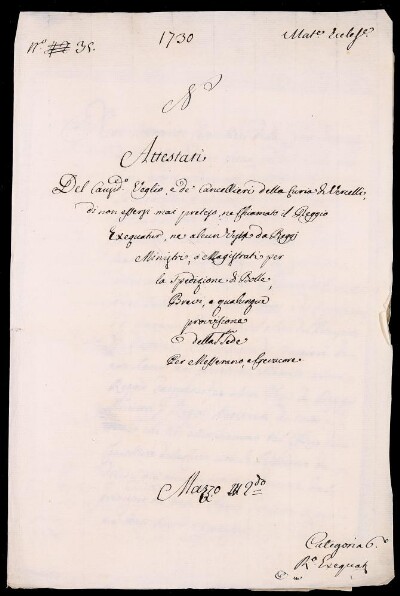 N.º 35.
1730
Mat.e Eccles.e
N.º
Attestati
Del Caus.do Voglio, e de' Cancellieri della Curia di Vercelli,
di non essersi mai preteso, ne chiamato il Reggio
Exequatur, ne alcun Visto da Reggi
Ministri, o Magistrati per
la Spedizione di Bolle,
Brevi, e qualunque
provisione
della S. Sede
Per Messerano, e Crevacore
Mazzo 2.do
Categoria 6.a
R.o Exequat.